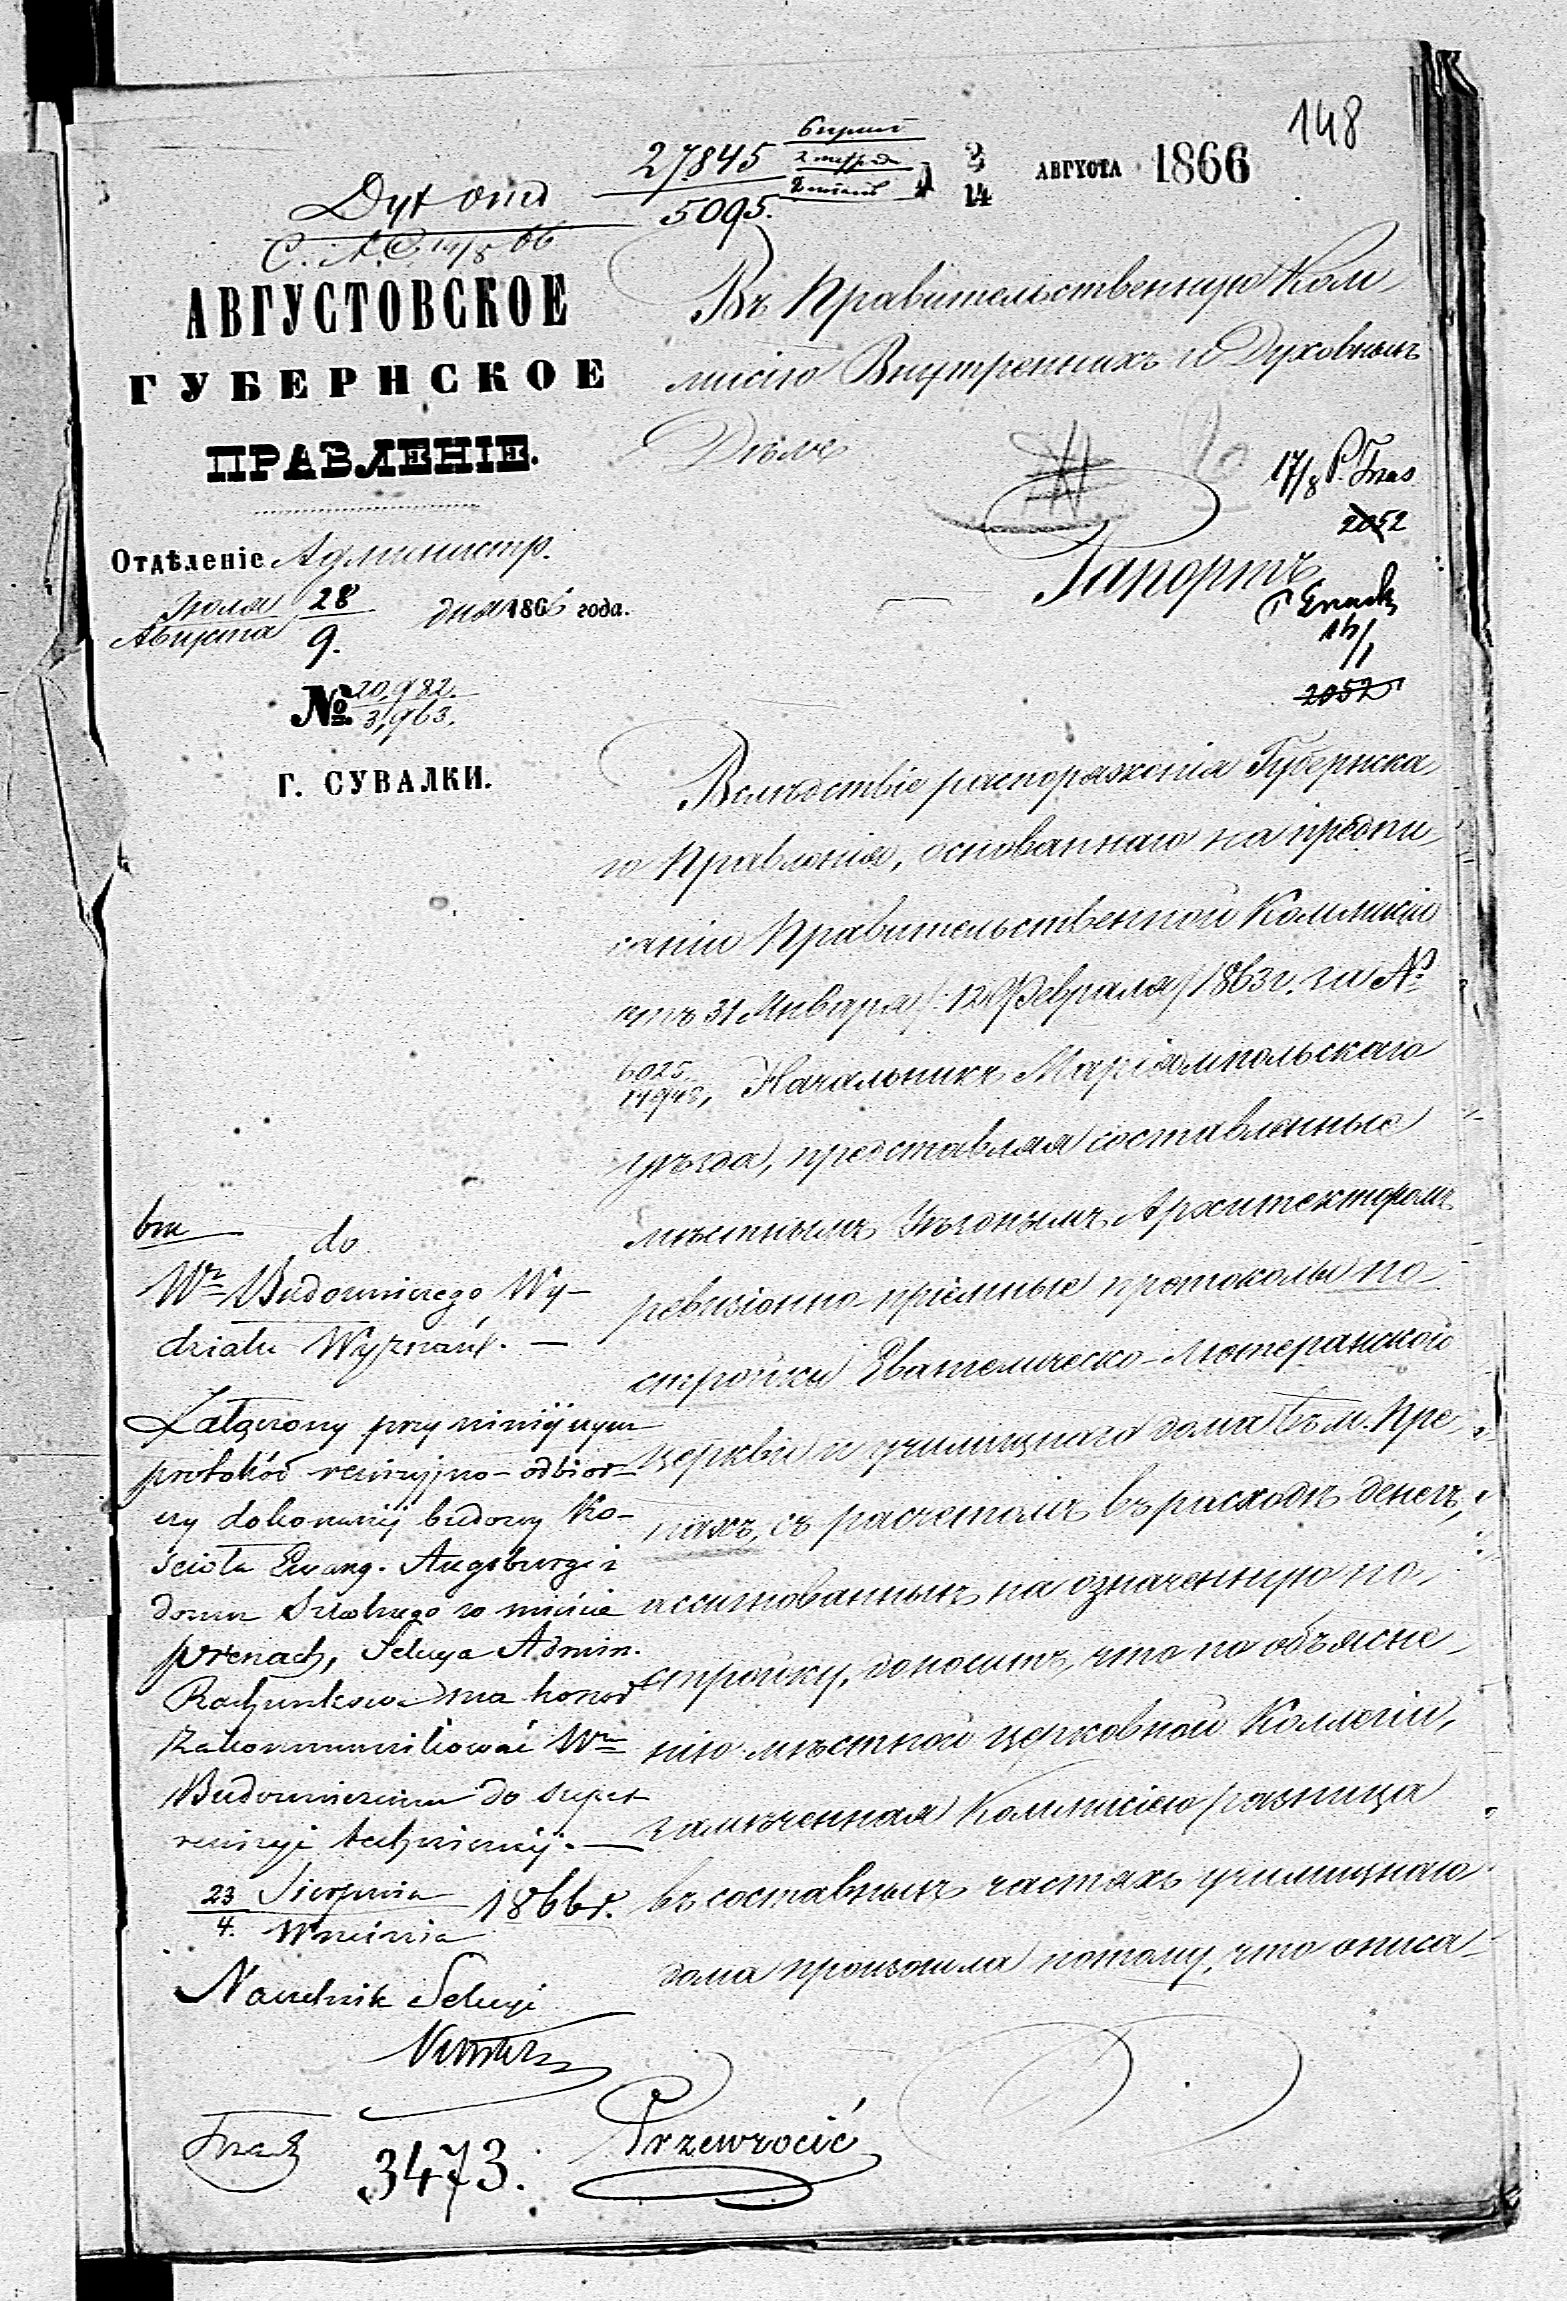 148
27845
5095.
2
14
АВГУСТА 1866
АВГУСТОВСКОЕ
ГУБЕРНСКОЕ
ПРАВЛЕНІЕ.
Отдѣленіе Администр.
Іюля 28
Августа 9.
дня 1866 года.
№ 20,982.
3,963.
Г. СУВАЛКИ.
Въ Правительственную Ком
мисію Внутреннихъ и Духовныхъ
Дѣлъ
17/8
2052
Рапортъ
2052
Вслѣдствіе распоряженія Губернска
го Правленія, основаннаго на предпи
саніи Правительственной Коммисіи
отъ 31 Января /12 Февраля/ 1863 г. за №
6025, Начальникъ Маріампольскаго
уѣзда, представляя составленные
мѣстнымъ Уѣзднымъ Архитекторомъ
ревизіонно-пріемные протоколы по
стройки Евангелическо-Лютеранской
церкви и училищнаго дома въ м. Пре
нахъ, съ расчетомъ въ расходѣ денегъ,
ассигнованныхъ на означенную по
стройку, доноситъ, что по объясне
нію мѣстной церковной Коллегіи,
замѣченная Коммисіею разница
въ составныхъ частяхъ училищнаго
дома произошла потому, что описа
do
Wº Budowniczego Wy-
działu Wyznań. —
Załączony przy niniejszym
protokół rewizyjno-odbior-
czy dokonanej budowy Ko-
ścioła Ewang. Augsburg: i
domu Szkolnego w mieście
Prenach, Sekcya Admin.
Rachunkowa ma honor
zakommunikować Wmu
Budowniczemu do super
rewizyi technicznej. —
23 Sierpnia
4. Września 1866 r.
Naczelnik Sekcyi
3473.
Przewrócić